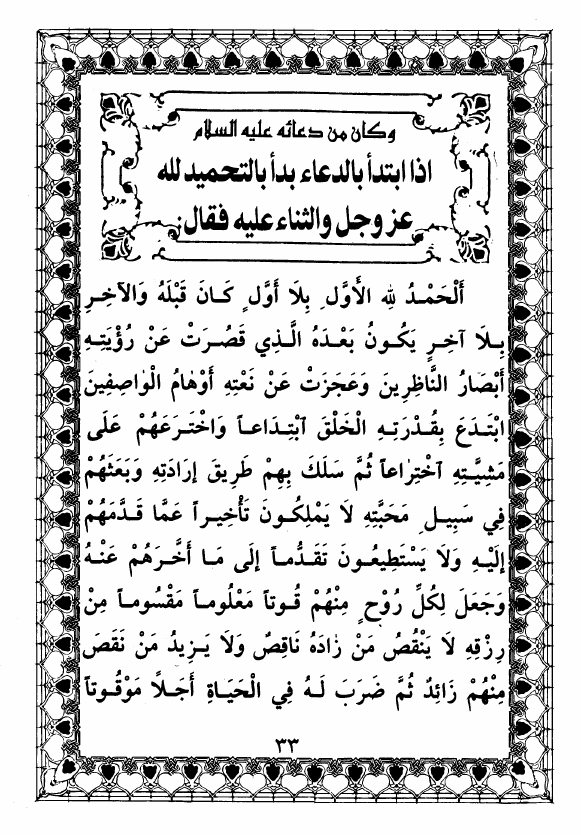 وكان من دعائه عليه السلام
اذا ابتدأ بالدعاء بدأ بالتحميد لله
عز وجل والثناء عليه فقال:
أَلْحَمْـدُ لِلّٰهِ الأَوَّلِ بِلَا أَوَّلٍ كَـانَ قَبْلَهُ وَالآخِرِ
بِـلَا آخِـرٍ يَكُـونُ بَعْـدَهُ الَّـذِي قَصُـرَتْ عَنْ رُؤْيَتِـهِ
أَبْصَارُ النَّاظِرِينَ وَعَجَزَتْ عَنْ نَعْتِهِ أَوْهَامُ الْوَاصِفِينَ
ابْتَـدَعَ بِقُـدْرَتِـهِ الْخَلْقَ ٱبْتِـدَاعـاً وَاخْتَـرَعَهُمْ عَلَى
مَشِيَّتِهِ ٱخْتِرَاعاً ثُمَّ سَلَكَ بِهِمْ طَرِيقَ إِرَادَتِهِ وَبَعَثَهُمْ
فِي سَبِيـلِ مَحَبَّتِهِ لَا يَمْلِكُـونَ تَأْخِيـراً عَمَّا قَـدَّمَهُمْ
إِلَيْـهِ وَلَا يَسْتَطِيعُـونَ تَقَـدُّمـاً إِلَى مَـا أَخَّـرَهُمْ عَنْـهُ
وَجَعَلَ لِكُلِّ رُوْحٍ مِنْهُمْ قُـوتـاً مَعْلُومـاً مَقْسُومـاً مِنْ
رِزْقِهِ لَا يَنْقُصُ مَنْ زَادَهُ نَاقِصٌ وَلَا يَـزِيـدُ مَنْ نَقَصَ
مِنْهُمْ زَائِدٌ ثُمَّ ضَرَبَ لَـهُ فِي الْحَيَـاةِ أَجَـلًا مَوْقُـوتاً
٣٣